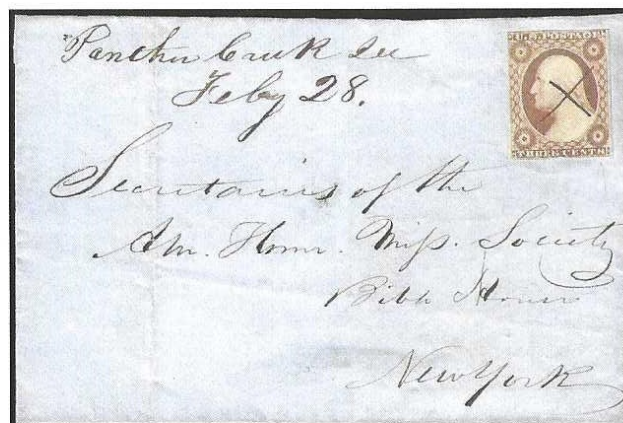 Panther Creek Ill
Feby 28.
U.S. POSTAGE
THREE CENTS
Secretaries of the
Am. Home. Miss. Society
Bible House
New York